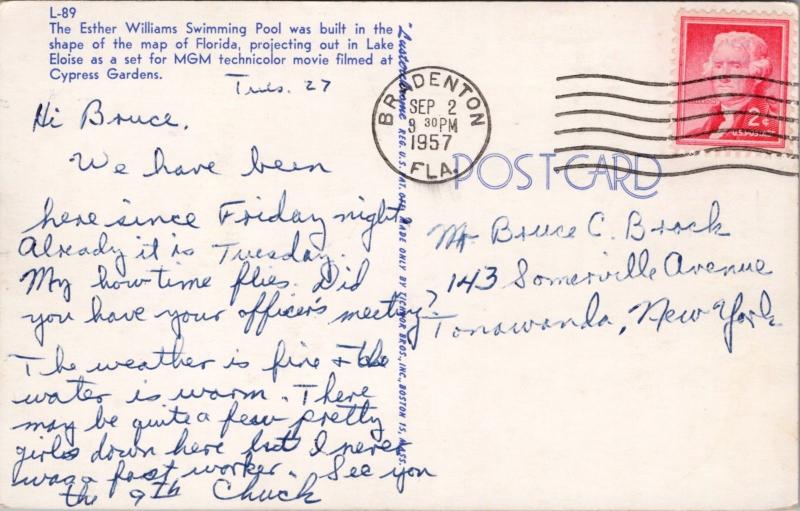 L-89
The Esther Williams Swimming Pool was built in the
shape of the map of Florida, projecting out in Lake
Eloise as a set for MGM technicolor movie filmed at
Cypress Gardens.
Tues. 27
Hi Bruce,
We have been
here since Friday night
Already it is Tuesday.
My how time flies. Did
you have your officer's meeting?
The weather is fine + the
water is warm. There
may be quite a few pretty
girls down here but I never
was a fast worker. See you
the 9th Chuck
"Lusterchrome" REG. U.S. PAT. OFF. MADE ONLY BY TICHNOR BROS., INC., BOSTON 15, MASS.
BRADENTON
SEP 2
9 30 PM
1957
FLA.
2¢
U.S. POSTAGE
POST CARD
Mr Bruce C. Brock
143 Somerville Avenue
Tonawanda, New York